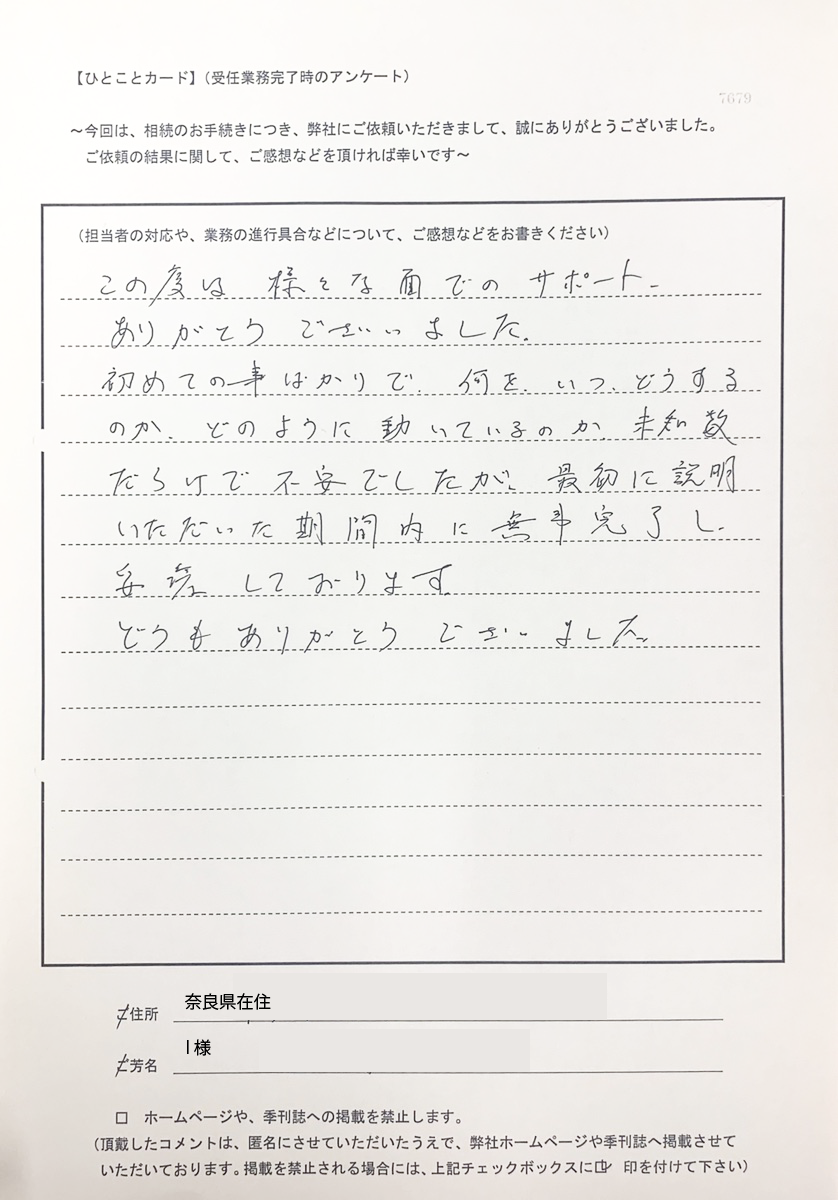 【ひとことカード】(受任業務完了時のアンケート)
7679
～今回は、相続のお手続きにつき、弊社にご依頼いただきまして、誠にありがとうございました。
ご依頼の結果に関して、ご感想などを頂ければ幸いです～
(担当者の対応や、業務の進行具合などについて、ご感想などをお書きください)
この度は 様々な面でのサポート、
ありがとう ございました。
初めての事ばかりで、何を、いつ、どうする
のか、どのように動いているのか、未知数
だらけで不安でしたが、最初に説明
いただいた期間内に無事完了し、
安堵しております。
どうもありがとう ございました。
ご住所 奈良県在住
ご芳名 I 様
□ ホームページや、季刊誌への掲載を禁止します。
(頂戴したコメントは、匿名にさせていただいたうえで、弊社ホームページや季刊誌へ掲載させて
いただいております。掲載を禁止される場合には、上記チェックボックスに☑ 印を付けて下さい)